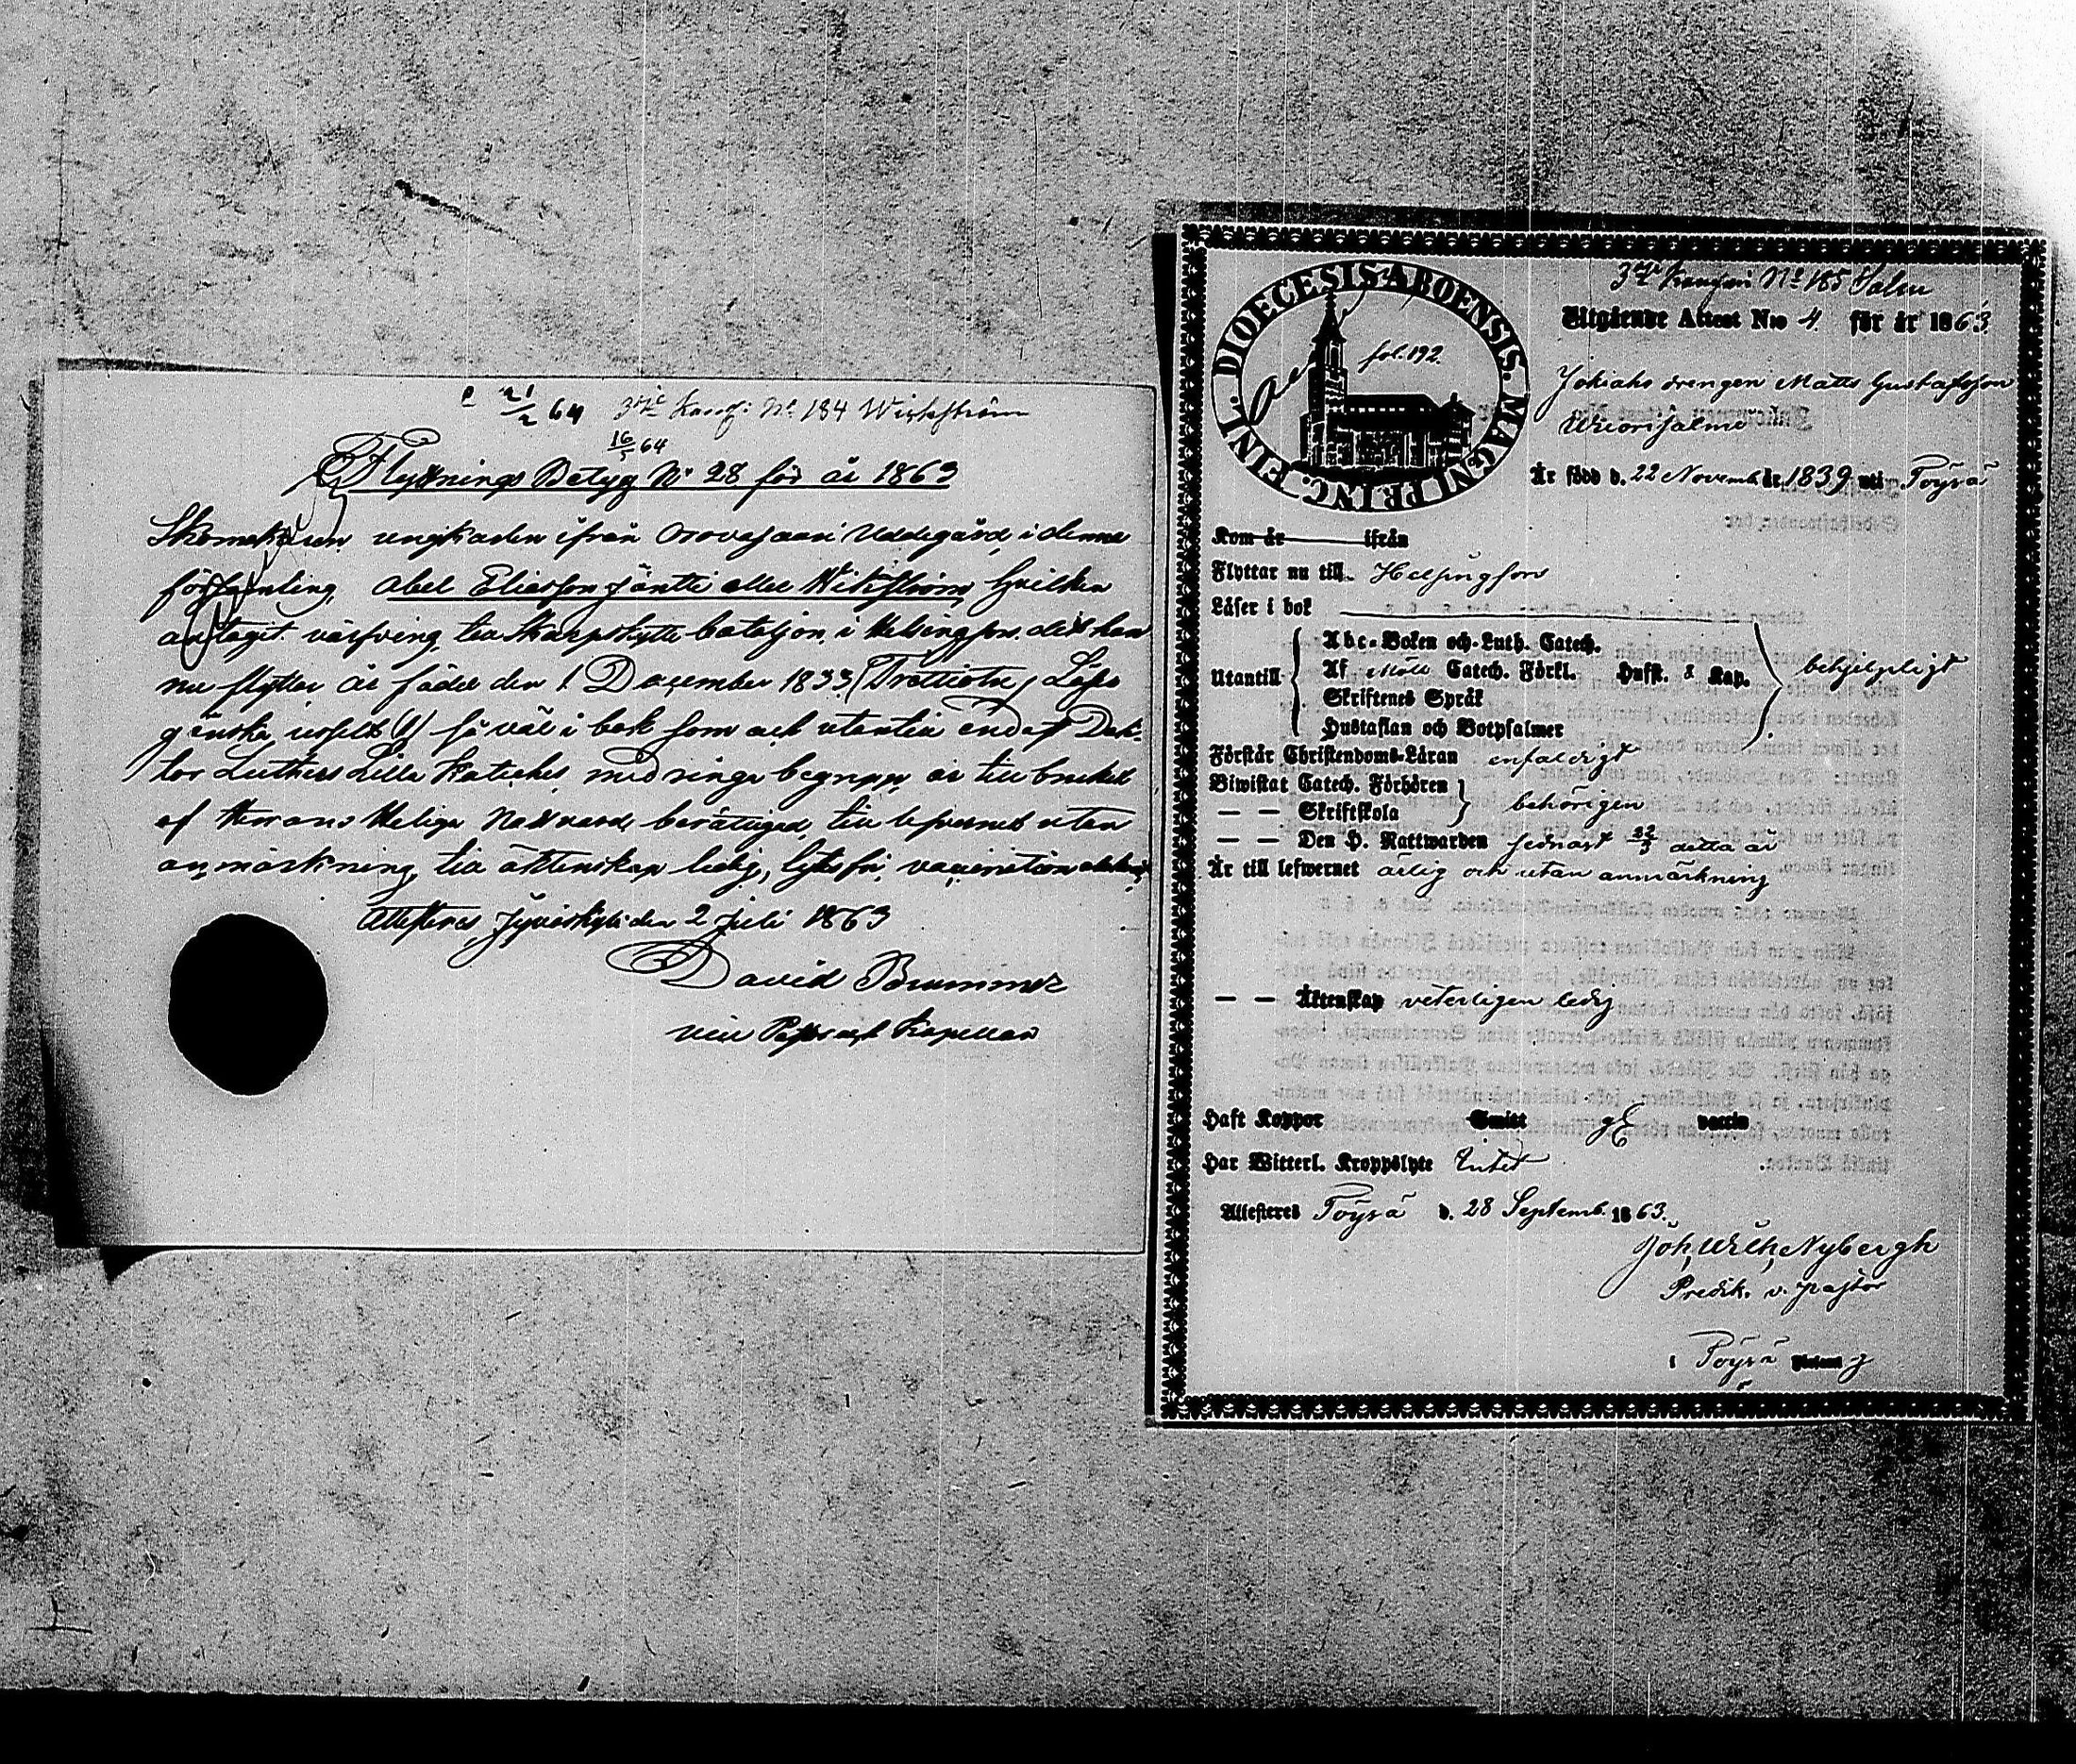 21/2 64 3die Komp: No 184 Wickström
16/5 64
Flyttnings Betyg No 28 för år 1863
Skomakaren ungkarlen ifrån Orovasaari Uddegård i denna
församling, Abel Eliasson Jäntti eller Wikström, hvilken
antagit värfving till Skarpskytte bataljon i Helsingfors, dit han
nu flyttar är född den 1 December 1833 (Trettiotre) Läser
ganska uselt (!) så väl i bok som ock utantill endast Dok-
tor Luthers Lilla Kateches, med ringa begrepp, är till bruket
af Herrans Heliga Nattvard berättigad, till lefvernet utan
anmärkning, till äktenskap ledig, lytesfri, vaccination
Attesteras, Jyväskylä den 2 Juli 1863
David Brummer
vice Pastor och Kapellan
DIOECESIS ABOENSIS. MAGNI PRINC. FINL.
fol. 192.
No 185 Salm
Utgående Attest N:o 4 för år 1863
drengen Matts Gustafsson
Är född d. 22 Novemb. år 1839 uti Töysä
Kom år ifrån
Flyttar nu till Helsingfors
Läser i bok
Utantill
Abc-Boken och Luth. Catech.
Af Catech. Förkl. Husst. & Kap. behjelpligt
Skriftenes Språk
Hustaflan och Botpsalmer
Förstår Christendoms-Läran enfaldigt
Biwistat Catech. Förhören
— — Skriftskola behörigen
— — Den H. Nattwarden sednast detta år
Är till lefwernet ärlig och utan anmärkning
— — Äktenskap veterligen ledig
Haft Koppor vaccin
Har Witterl. Kroppslyte Intet
Attesteres Töysä d. 28 Septemb. 1863.
Joh. Wilh. Nybergh
Predik. v. pastor
i Töysä